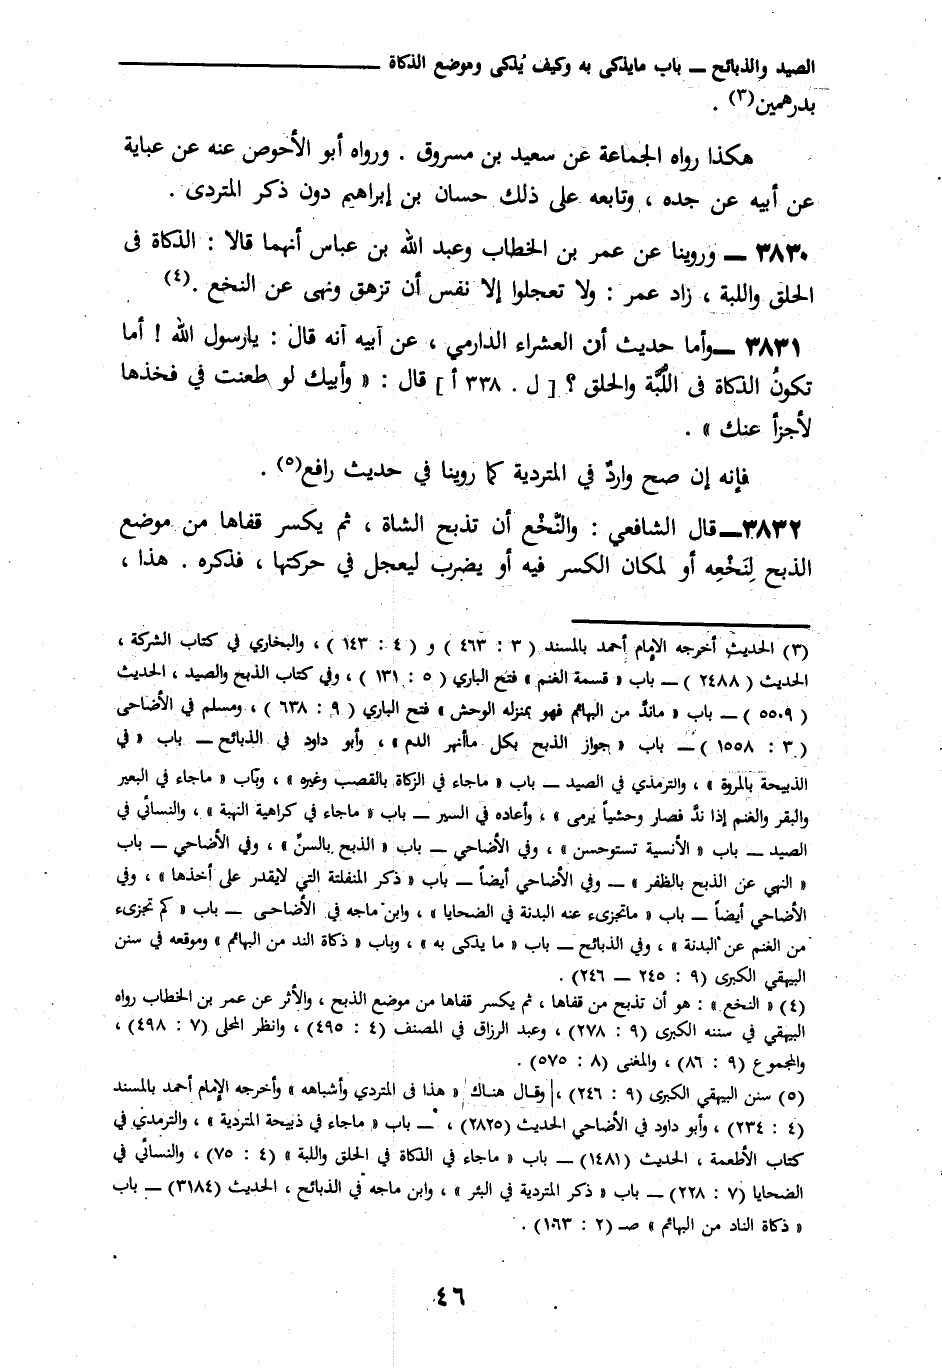 الصيد والذبائح ــ باب مايذكى به وكيف يُذكى وموضع الذكاة
بدرهمين(٣) .
هكذا رواه الجماعة عن سعيد بن مسروق . ورواه أبو الأحوص عنه عن عباية
عن أبيه عن جده ، وتابعه على ذلك حسان بن إبراهيم دون ذكر المتردى .
٣٨٣٠ ــ وروينا عن عمر بن الخطاب وعبد الله بن عباس أنهما قالا : الذكاة فى
الحلق واللبة ، زاد عمر : ولا تعجلوا إلا نفس أن تزهق ونهى عن النخع .(٤)
٣٨٣١ ــ وأما حديث أن العشراء الدارمي ، عن أبيه آنه قال : يارسول الله ! أما
تكونُ الذكاة فى اللُّبَّة والحلق ؟ [ ل . ٣٣٨ أ ] قال : « وأبيك لو طعنت في فخذها
لأجزأ عنك » .
فإنه إن صح واردٌ في المتردية كما روينا في حديث رافع(٥) .
٣٨٣٢ــ قال الشافعي : والنَّخْع أن تذبح الشاة ، ثم يكسر قفاها من موضع
الذبح لِنَخْعِه أو لمكان الكسر فيه أو يضرب ليعجل في حركتها ، فذكره . هذا ،
(٣) الحديث أخرجه الإمام أحمد بالمسند ( ٣ : ٤٦٣ ) و ( ٤ : ١٤٣ ) ، والبخاري في كتاب الشركة ،
الحديث ( ٢٤٨٨ ) ــ باب « قسمة الغنم » فتح الباري ( ٥ : ١٣١ ) ، وفي كتاب الذبح والصيد ، الحديث
( ٥٥٠٩ ) ــ باب « ماندَّ من البهائم فهو بمنزله الوحش » فتح الباري ( ٩ : ٦٣٨ ) ، ومسلم في الأضاحى
( ٣ : ١٥٥٨ ) ــ باب « جواز الذبح بكل ماأنهر الدم » ، وأبو داود في الذبائح ــ باب « في
الذبيحة بالمروة » ، والترمذي في الصيد ــ باب « ماجاء في الزكاة بالقصب وغيره » ، وباب « ماجاء في البعير
والبقر والغنم إذا ندَّ فصار وحشياً يرمى » ، وأعاده في السير ــ باب « ماجاء في كراهية النهبة » ، والنسائي في
الصيد ــ باب « الأنسية تستوحسن » ، وفي الأضاحي ــ باب « الذبح بالسنِّ » ، وفي الأضاحي ــ باب
« النهي عن الذبح بالظفر » ــ وفي الأضاحي أيضاً ــ باب « ذكر المنفلتة التي لايقدر على أخذها » ، وفي
الأضاحي أيضاً ــ باب « ماتجزىء عنه البدنة في الضحايا » ، وابن ماجه في الأضاحى ــ باب « كم تجزىء
من الغنم عن البدنة » ، وفي الذبائح ــ باب « ما يذكى به » ، وباب « ذكاة الند من البهائم » وموقعه في سنن
البيهقي الكبرى (٩ : ٢٤٥ ــ ٢٤٦) .
(٤) « النخع » : هو أن تذبح من قفاها ، ثم يكسر قفاها من موضع الذبح ، والأثر عن عمر بن الخطاب رواه
البيهقي في سننه الكبرى (٩ : ٢٧٨) ، وعبد الرزاق في المصنف (٤ : ٤٩٥) ، وانظر المحلى (٧ : ٤٩٨) ،
والمجموع (٩ : ٨٦) ، والمغنى (٨ : ٥٧٥) .
(٥) سنن البيهقي الكبرى (٩ : ٢٤٦) ، وقال هناك « هذا فى المتردي وأشباهه » وأخرجه الإمام أحمد بالمسند
(٤ : ٢٣٤) ، وأبو داود في الأضاحي الحديث (٢٨٢٥) ، ــ باب « ماجاء في ذبيحة المتردية » ، والترمذي في
كتاب الأطعمة ، الحديث (١٤٨١) ــ باب « ماجاء في الذكاة في الحلق واللبة » (٤ : ٧٥) ، والنسائي في
الضحايا (٧ : ٢٢٨) ــ باب « ذكر المتردية في البئر » ، وابن ماجه في الذبائح ، الحديث (٣١٨٤) ــ باب
« ذكاة الناد من البهائم » صـ (٢ : ١٠٦٣) .
٤٦